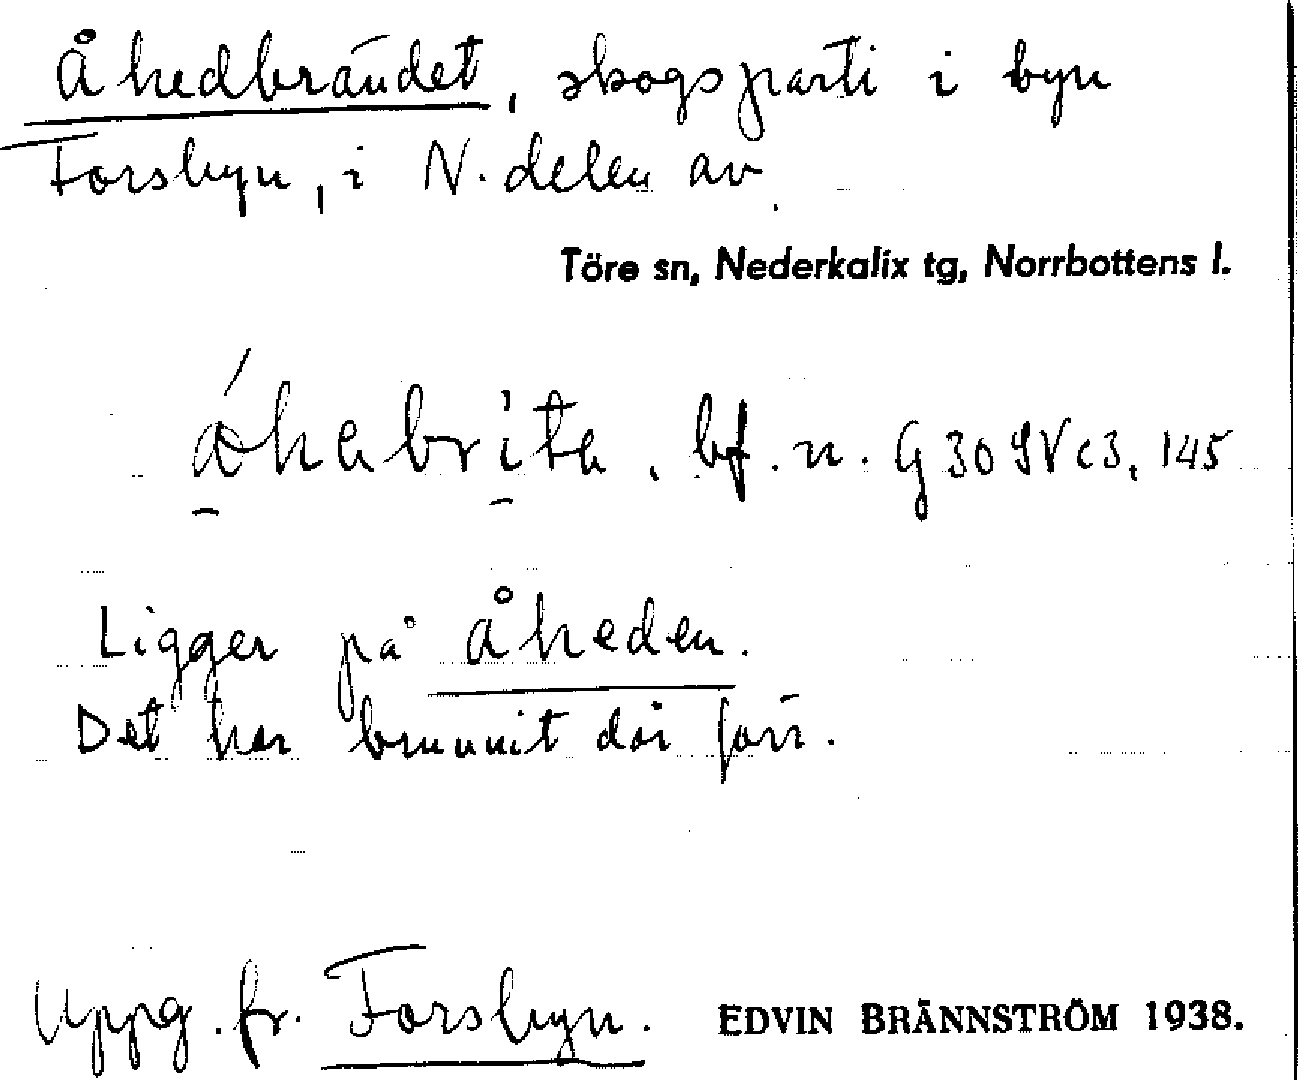 Åhedbrändet, skogsparti i byn
Forsbyn, i N. delen av
Töre sn, Nederkalix tg, Norrbottens l.
bf. n. G 30 SV c3, 145
Ligger på Åheden.
Det har brunnit där förr.
Uppg. fr. Forsbyn. EDVIN BRÄNNSTRÖM 1938.